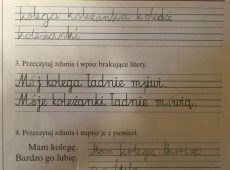 kolega koleżanka koledż
koleżanki
3. Przeczytaj zdania i wpisz brakujące litery.
Mój kolega ładnie mówi.
Moje koleżanki ładnie mówią.
4. Przeczytaj zdania i napisz je z pamięci.
Mam kolegę. Mam kolegę Bardzo
Bardzo go lubię.